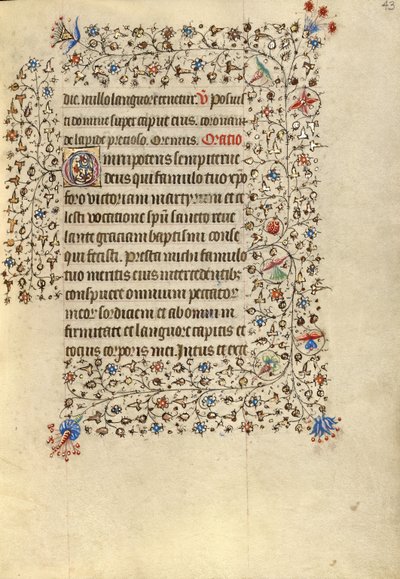 43
die. nullo languore tenetur. V̷ Posuis
ti domine super caput eius. coronam
de lapide precioso. Oremus. Oratio
Omnipotens sempiterne
deus qui famulo tuo xpo
foro victoriam martyrium et ce
lesti vocatione spũ sancto reve
lante graciam baptismi conse
qui fecisti. Presta michi famulo
tuo meritis eius intercedentibꝫ
conspuere omnium peccator
meor sordiacem et ab omni in
firmitate et languore capitis et
tocius corporis mei. Intus et exte